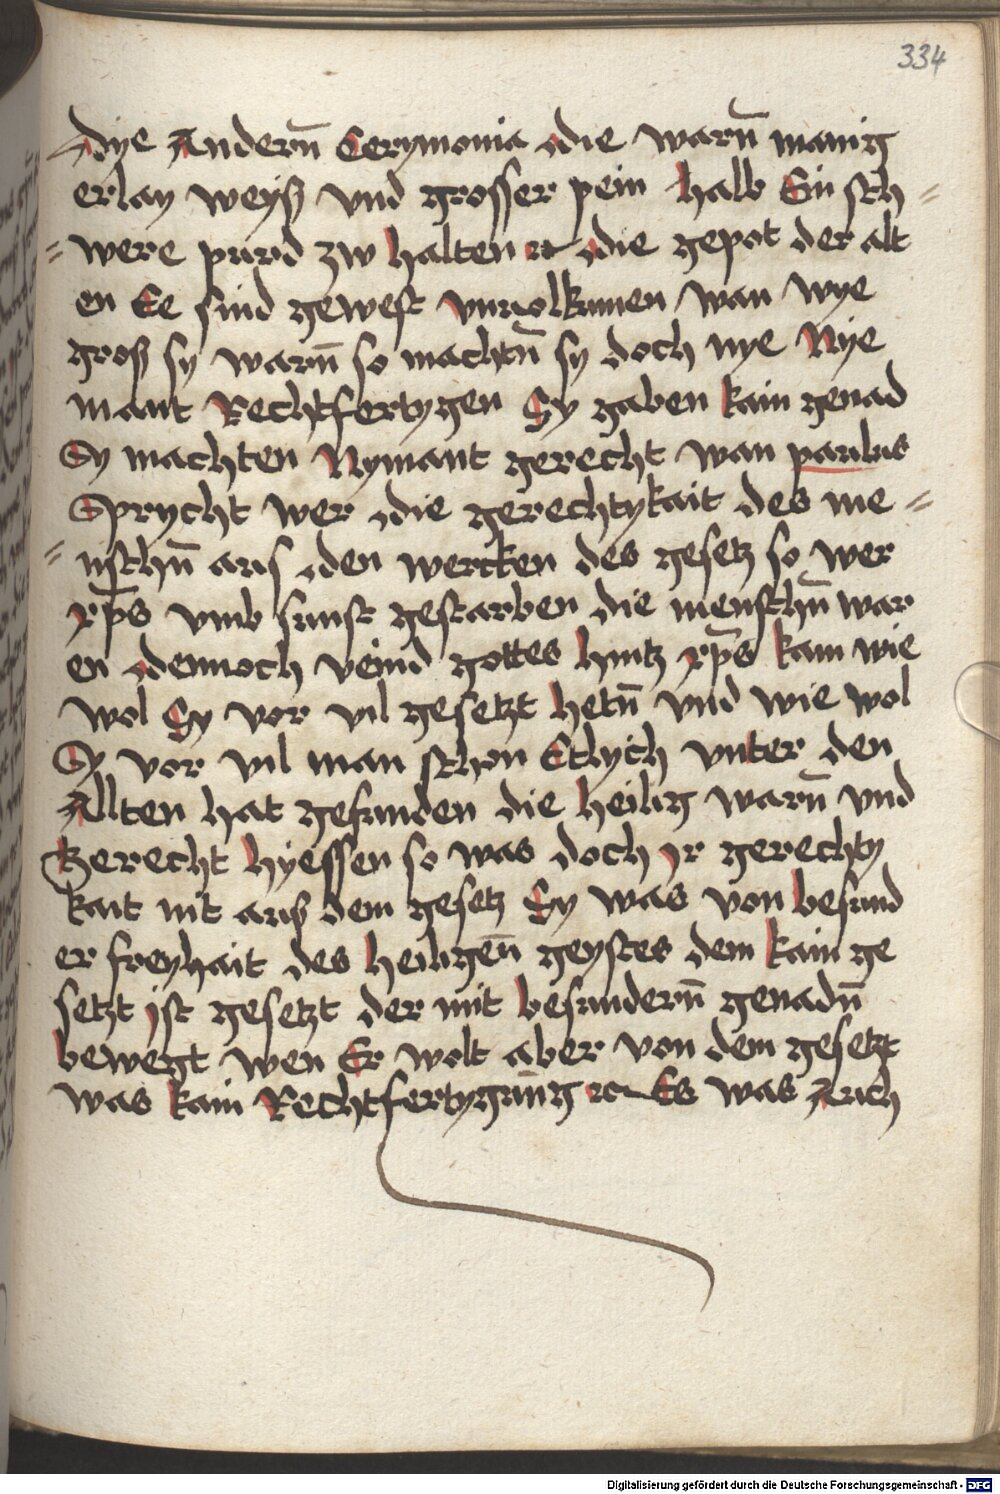 334
Dye Andern̄ Cerymonia die warn̄ manig
erlay weyß vnd grosser pein halb Ein sch=
=were purd zw halten ꝛc die gepot der alt
en Ee sind gewest vnuolkumen wan wye
groß sy warn̄ so machtn̄ sy doch nye Nye
mant Rechtfertygen Sy gaben kain genad
Sy machten Nymant gerecht wan paulus
Sprycht wer die gerechtykait des me=
=nschn̄ aus den wercken des gesetz so wer
xp̄s vmb sunst gestarben die menschn̄ war
en dennoch veind gottes hintz xp̄s kam wie
wol Sy vor vil gesetzt hetn̄ vnd wie wol
Sy vor vil man schon Etlych vnter den
Allten hat gefunden die heilig warn̄ vnd
Gerecht hyessen so was doch yr gerechty
kait nit auß dem gesetz Sy was von besund
er freyhait des heiligen̄ geystes dem kain ge
setzt yst gesetzt der mit besundern̄ genadn̄
bewegt wen Er wolt aber von dem gesetzt
was kain Rechtfertygung ꝛc Es was Auch
Digitalisierung gefördert durch die Deutsche Forschungsgemeinschaft - DFG